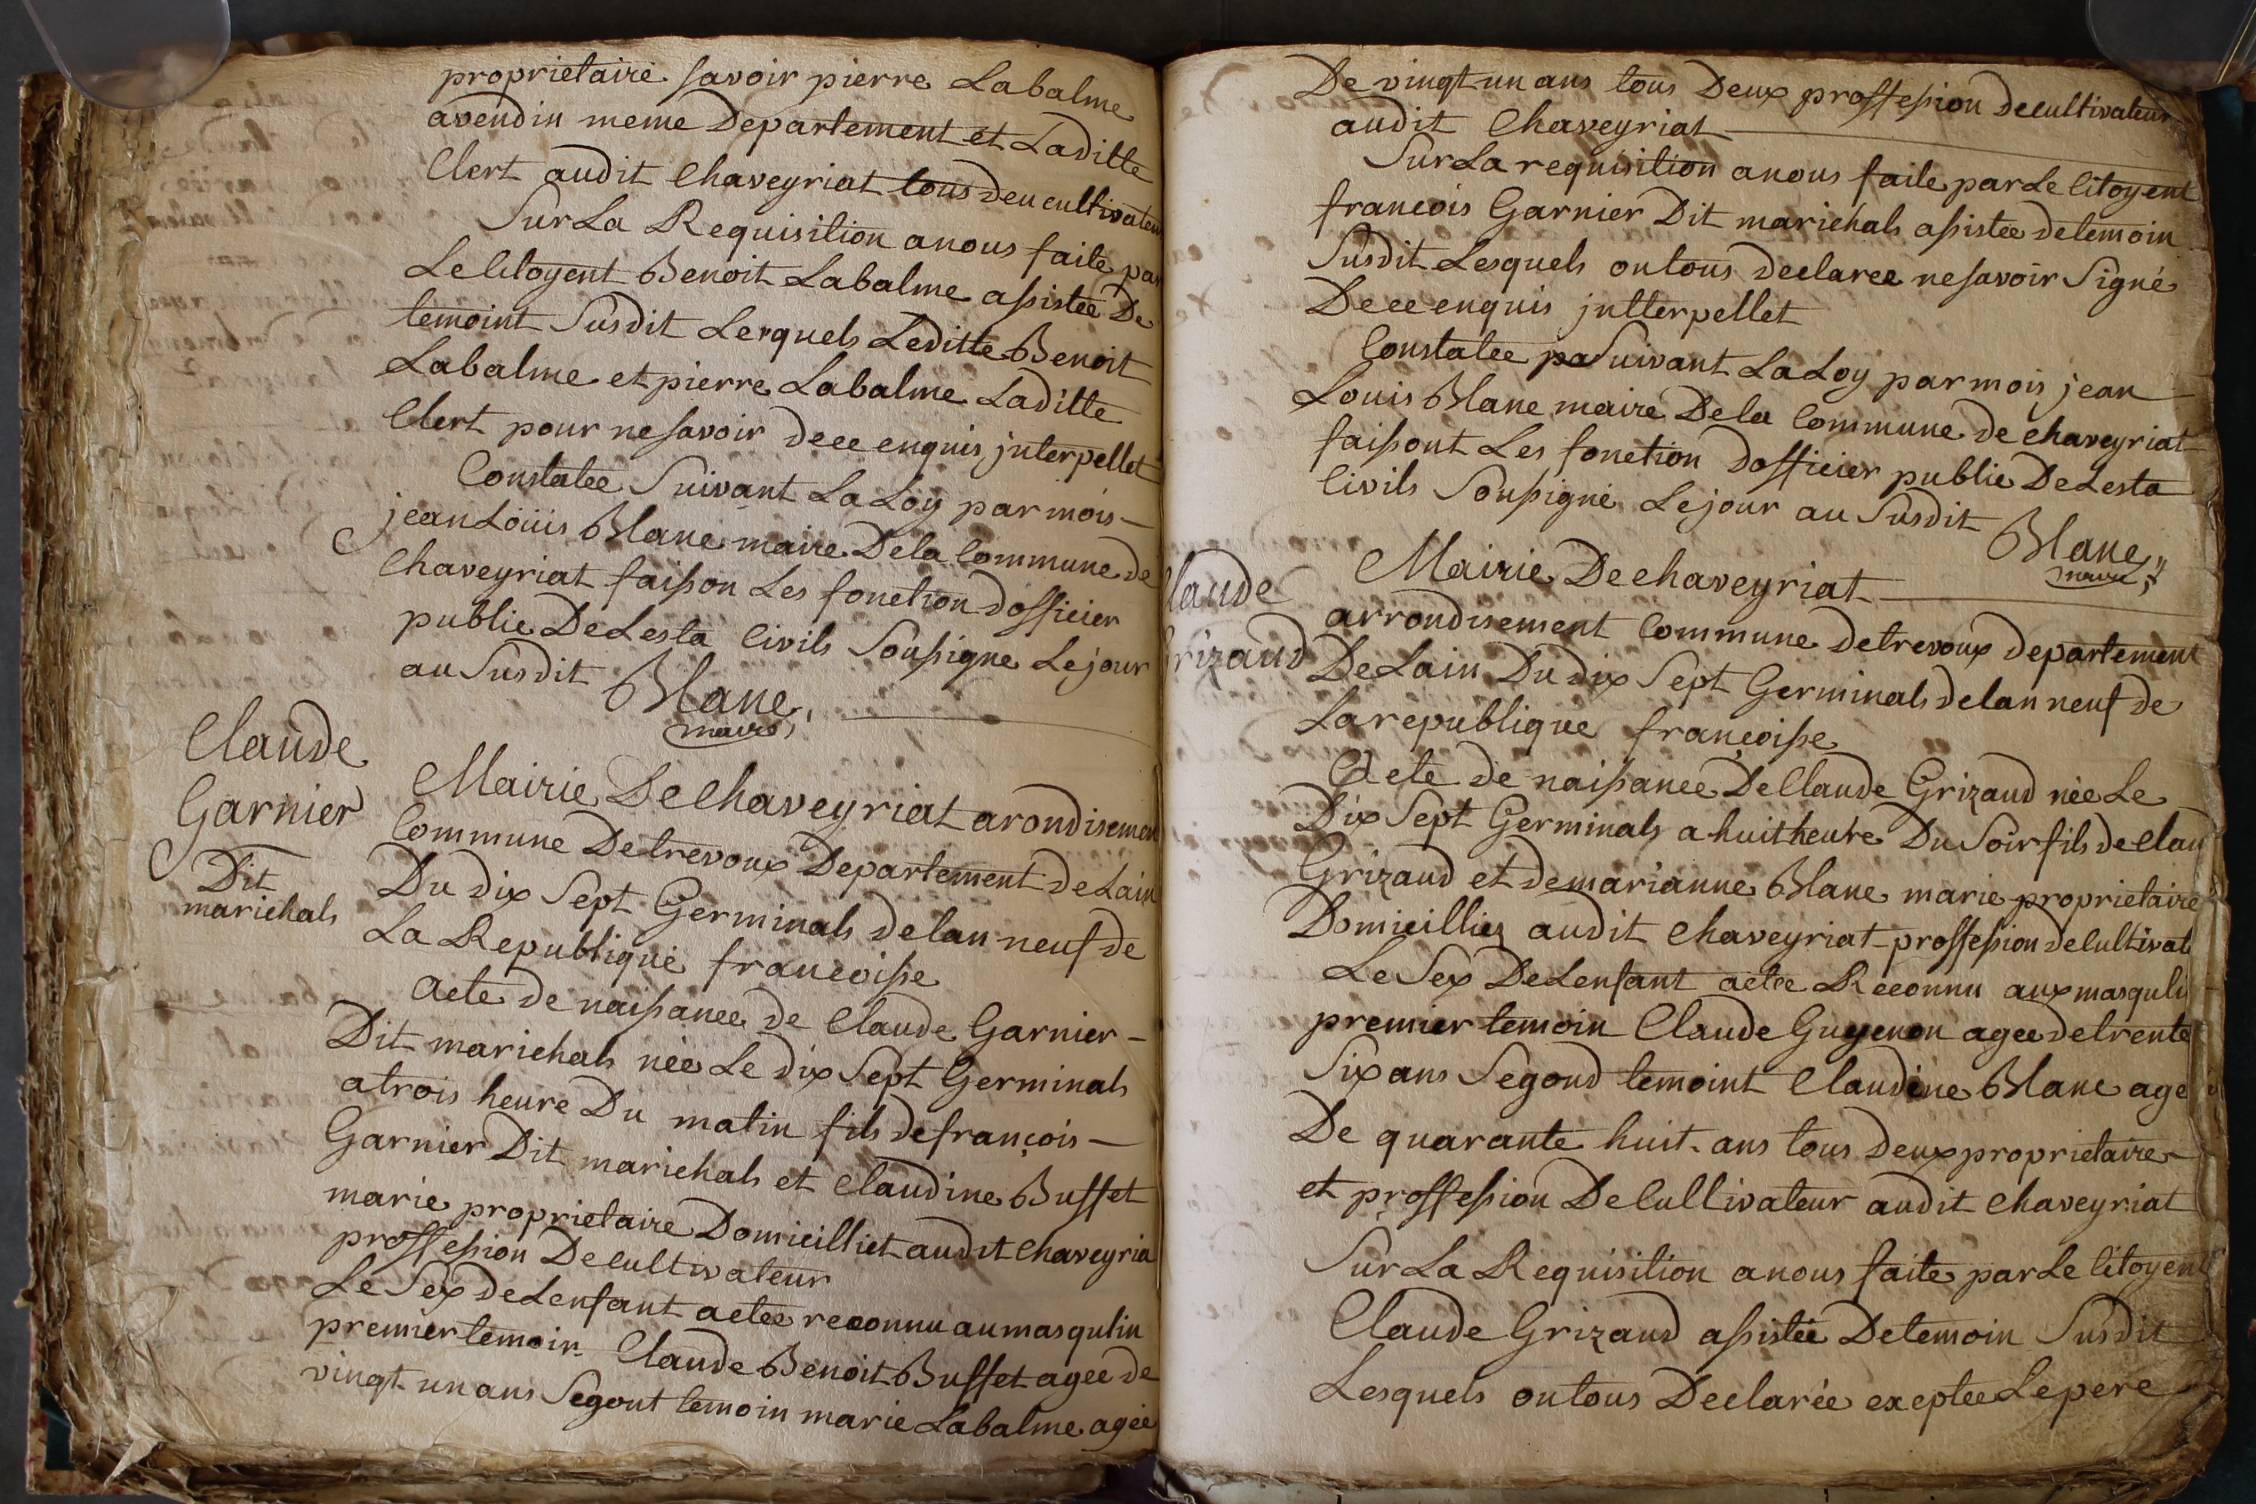 proprietaire savoir pierre Labalme
avendin meme Departement et Laditte
Clert audit Chaveyriat tous deu cultivateur
Sur La Requisition anous faite par
Le Citoyent Benoit Labalme assistée De
temoint Susdit Lerquels Leditte Benoit
Labalme et pierre Labalme Laditte
Clert pour ne savoir dece enquis jnterpellet
Constatée Suivant La Loy par mois
jean Loüis Blanc maire Dela Commune de
Chaveyriat faisson Les fonction dofficier
public De Lesta Civils Soussigne Le jour
au Susdit Blanc
maire
Claude
Garnier
Dit
marichals
Mairie De Chaveyriat arondisemen
Commune De trevoux Departement de Lain
Du dix Sept Germinals delan neuf de
La Republique francoisse
Acte de naissance de Claude Garnier
Dit marichals née Le dix Sept Germinals
atrois heure Du matin fils defrançois
Garnier Dit marichals et Claudine Buffet
marie proprietaire Domicilliet audit Chaveyria
proffession De cultivateur
Le Sex de Lenfant actée reconnu aumasqulin
premier temoin Claude Benoit Buffet agee de
vingt un ans Segout temoin marie Labalme agée
De vingt un ans tous Deux proffession decultivateur
audit Chaveyriat
Sur La requisition anous faite par Le Citoyent
francois Garnier Dit marichals assistée detemoin
Susdit Lesquels ontous declaree nesavoir Signé
Dece enquis jntterpellet
Constatée pa Suivant La Loy par mois jean
Louis Blanc maire Dela Commune de Chaveyriat
faissont Les fonction dofficier public De Lesta
Civils Soussigné Le jour au Susdit
Blanc
maire
laude
rizaud
Mairie De chaveyriat
arrondisement Commune detrevoux departement
De Lain Du dix Sept Germinals delan neuf de
La republique françoisse
Acte de naissance De Claude Grizaud née Le
Dix Sept Germinals a huit heure Du Soir fils de Clau
Grizaud et demarianne Blanc marie proprietaire
Domicillies audit Chaveyriat proffession decultivat
Le Sex De Lenfant actée Reconnu aux masquli
premier temoin Claude Guyenon agee detrente
Six ans Segond temoint Claudine Blanc age
De quarante huit ans tous deux proprietaire
et proffession De Cultivateur audit Chaveyriat
Sur La Requisition anous faite par Le Citoyent
Claude Grizaud assistée De temoin Susdit
Lesquels ontous Declarée exeptee Le pere